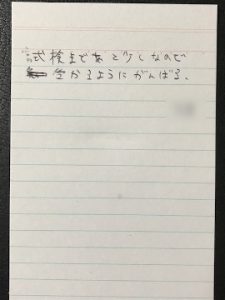 試検まであと少しなので
受かるようにがんばる。